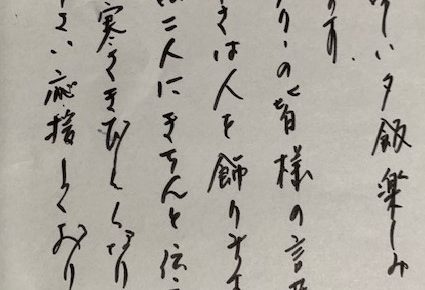 しい夕飯楽しみ
ます。
の皆様の言
は人を飾り
二人にきちんと伝
寒さきびしくなり
さい応援しており